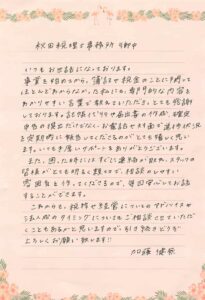 秋田税理士事務所 御中
いつもお世話になっております。
事業を始めてから、簿記や税金のことに関って
ほとんどわからなかった私にも、専門的な内容を
わかりやすい言葉で教えていただき、とても感謝
しております。記帳代行や届出書の作成、確定
申告の検証だけでなく、お電話やお中面で進捗状況
を定期的に報告してくださるので、とても嬉しく思
います。いつも手厚いサポートをありがとうございます。
また、困った時にはすぐに連絡が取れ、スタッフの
皆様がとても明るく親切で、相談のしやすい
雰囲気を作ってくださるので、毎回安心してお話する
ことができます。
これからも、税務や経営についてのアドバイスや
法人成のタイミングについてもご相談させていただ
くこともあるかと思いますので、引き続きどうぞ
よろしくお願い致します!!
加藤 健